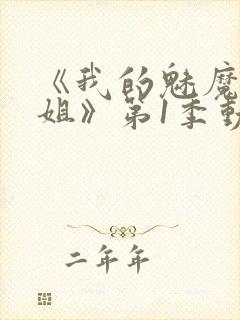 《我的魅魔
姐》第1季動
二年年